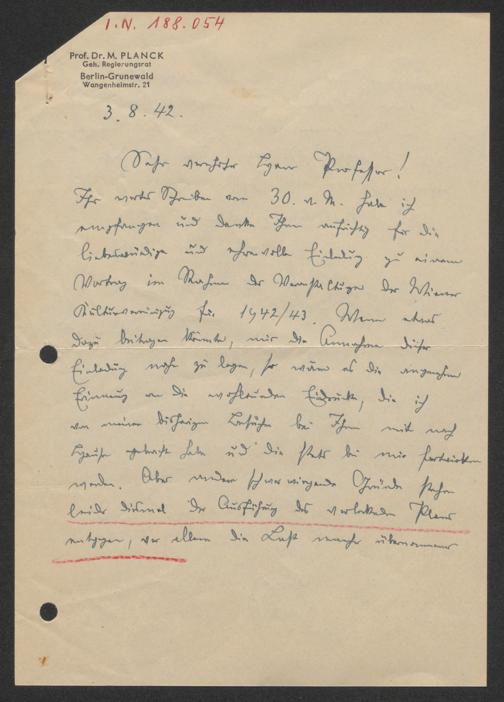 I.N. 188.054
Prof. Dr. M. PLANCK
Geh. Regierungsrat
Berlin-Grunewald
Wangenheimstr. 21
3. 8. 42.
Sehr verehrter Herr Professor!
Ihr wertes Schreiben vom 30. v. M. habe ich
empfangen und danke Ihnen aufrichtig für die
liebenswürdige und ehrenvolle Einladung zu einem
Vortrag im Rahmen der Veranstaltungen der Wiener
Kulturvereinigung für 1942/43. Wenn etwas
dazu beitragen könnte, mir die Annahme dieser
Einladung nahe zu legen, so wäre es die angenehme
Erinnerung an die wohltuenden Eindrücke, die ich
von meinen bisherigen Besuchen bei Ihnen mit nach
Hause gebracht habe und die stets bei mir fortwirken
werden. Aber andere schwerwiegende Gründe stehen
leider diesmal der Ausführung des verlockenden Planes
entgegen, vor allem die Last mancher übernommener